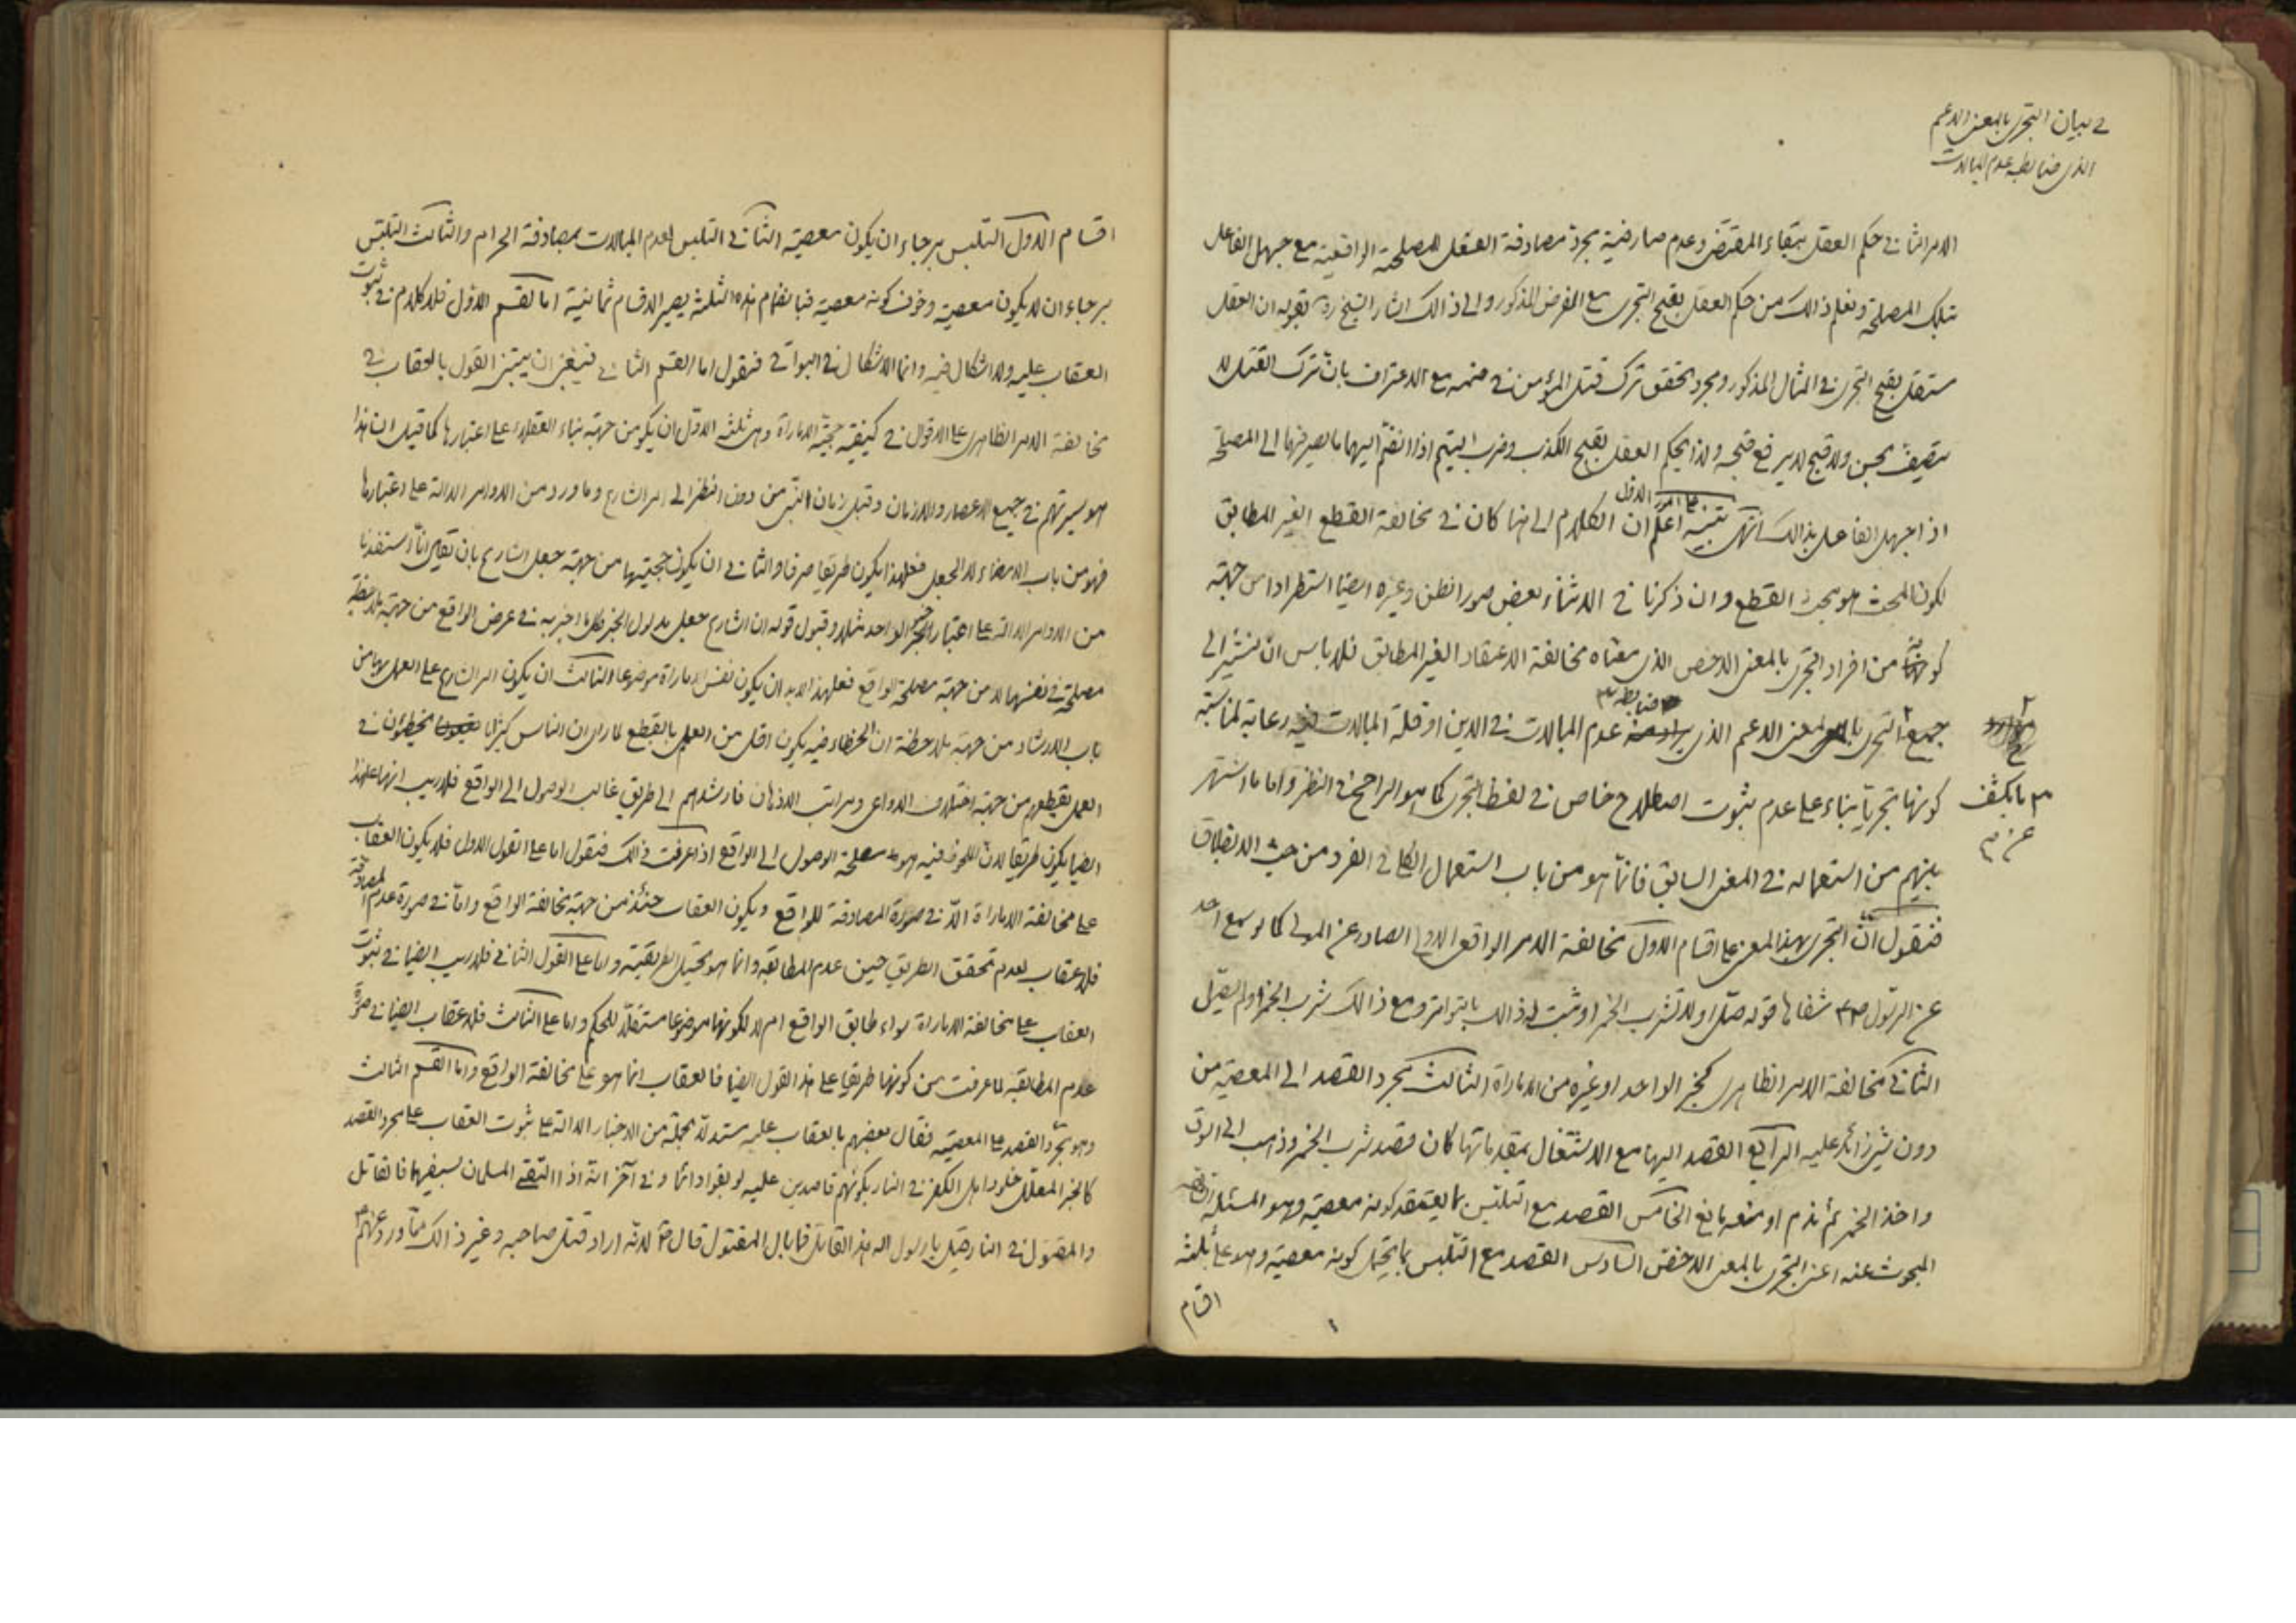 في بيان التجري بالمعنى الاعم
الذي ضابطه عدم المبالات
الامر الثاني حكم العقل ببقاء المقتضى وعدم معارضية مجرد مصادفة الفعل للمصلحة الواقعية مع جهل الفاعل
بتلك المصلحة ونعلم ذالك من حكم العقل بقبح التجري مع الفرض المذكور والى ذالك اشار الشيخ ره بقوله ان العقل
مستقل بقبح التجري في المثال المذكور ومجرد تحقق ترك قتل المؤمن في ضمنه مع الاعتراف بان ترك القتل لا
يتصف بحسن ولا قبح لا يرفع قبحه ولذا يحكم العقل بقبح الكذب وضرب اليتيم اذا انضم اليهما ما يصرفهما الى المصلحة
اذا جهل الفاعل بذالك انتهى تنبيه اعلم ان الكلام الى هنا كان في مخالفة القطع الغير المطابق
لكون المبحث هو بحث القطع وان ذكرنا في الاثناء بعض صور الظن وغيره ايضا استطرادا من جهة
كونه من افراد التجري بالمعنى الاخص الذي معناه مخالفة الاعتقاد الغير المطابق فلا باس ان نشير الى
جميع التجري بالمعنى الاعم الذي ضابطه عدم المبالات في الدين او قلة المبالات فيه رعاية لمناسبة
ما يكشف
عن
كونها تجريا بناء على عدم ثبوت اصطلاح خاص في لفظ التجري كما هو الراجح في النظر واما ما اشتهر
بينهم من استعماله في المعنى السابق فانما هو من باب استعمال الكلي في الفرد من حيث الانطباق
فنقول ان التجري بهذا المعنى على اقسام الاول مخالفة الامر الواقعي الاولي الصادر عن المولى كما لو سمع احد
عن الرسول ص شفاها قوله صل او لا تشرب الخمر او ثبت له ذالك بالتواتر ومع ذالك شرب الخمر او لم يصل
الثاني مخالفة الامر الظاهري كخبر الواحد او غيره من الامارة الثالث مجرد القصد الى المعصية من
دون شيء زائد عليه الرابع القصد اليها مع الاشتغال بمقدماتها كان قصد شرب الخمر وذهب الى السوق
واخذ الخمر ثم ندم او منعه مانع الخامس القصد مع التلبس بما يعتقد كونه معصية وهو المسئلة
المبحوث عنه اعني التجري بالمعنى الاخص السادس القصد مع التلبس بما يحتمل كونه معصية وهو على ثلثة
اقسام
اقسام الاول التلبس برجاء ان يكون معصية الثاني التلبس لعدم المبالات بمصادفة الحرام والثالث التلبس
برجاء ان لا يكون معصية وخوف كونه معصية فبانضمام هذه الثلثة يصير الاقسام ثمانية اما القسم الاول فلا كلام في ثبوت
العقاب عليه ولا اشكال فيه وانما الاشكال في البواقي فنقول اما القسم الثاني فينبغي ان يبتني القول بالعقاب في
مخالفة الامر الظاهري على الاقوال في كيفية حجية الامارة وهي ثلثة الاول ان يكون من جهة بناء العقلاء على اعتبارها كما قيل ان هذا
هو سيرتهم في جميع الاعصار والازمان وقبل زمان النبي من دون النظر الى امر الشارع وما ورد من الاوامر الدالة على اعتبارها
فهو من باب الامضاء لا الجعل فعلى هذا يكون طريقا صرفا والثاني ان يكون حجيتها من جهة جعل الشارع بان يقال انا استفدنا
من الاوامر الدالة على اعتبار الخبر الواحد مثلا وقبول قوله ان الشارع جعل مدلول الخبر وكل ما اخبر به في عرض الواقع من جهة ملاحظة
مصلحة في نفسها لا من جهة مصلحة الواقع فعلى هذا لابد ان يكون نفس الامارة موضوعا والثالث ان يكون امر الشارع على العمل بها من
باب الارشاد من جهة ملاحظة ان الخطاء فيه يكون اقل من العمل بالقطع لما راى ان الناس كثيرا ما يخطئون في
العمل بقطعهم من جهة اختلاف الدواعي ومراتب الاذهان فارشدهم الى طريق غالب الوصول الى الواقع فلا ريب انها على هذا
ايضا يكون طريقا لان الملحوظ فيه هو مصلحة الوصول الى الواقع اذا عرفت ذالك فنقول اما على القول الاول فلا يكون العقاب
على مخالفة الامارة الا في صورة المصادفة للواقع ويكون العقاب حينئذ من جهة مخالفة الواقع واما في صورة عدم المصادفة
فلا عقاب لعدم تحقق الطريق حين عدم المطابقة وانما هو تخيل الطريقية واما على القول الثاني فلا ريب ايضا في ثبوت
العقاب على مخالفة الامارة سواء طابق الواقع ام لا لكونها موضوعا مستقلا للحكم واما على الثالث فلا عقاب ايضا في صورة
عدم المطابقة لما عرفت من كونها طريقا على هذا القول ايضا فالعقاب انما هو على مخالفة الواقع واما القسم الثالث
وهو تجرد القصد على المعصية فقال بعضهم بالعقاب عليه مستدلا بجملة من الاخبار الدالة على ثبوت العقاب على مجرد القصد
كالخبر المعلل خلود اهل الكفر في النار بكونهم قاصدين عليه لو بقوا دائما وفي آخر انه اذا التقى المسلمان بسيفهما فالقاتل
والمقتول في النار قيل يا رسول الله هذا القاتل فما بال المقتول قال ص لانه اراد قتل صاحبه وغير ذالك مما ورد عنهم